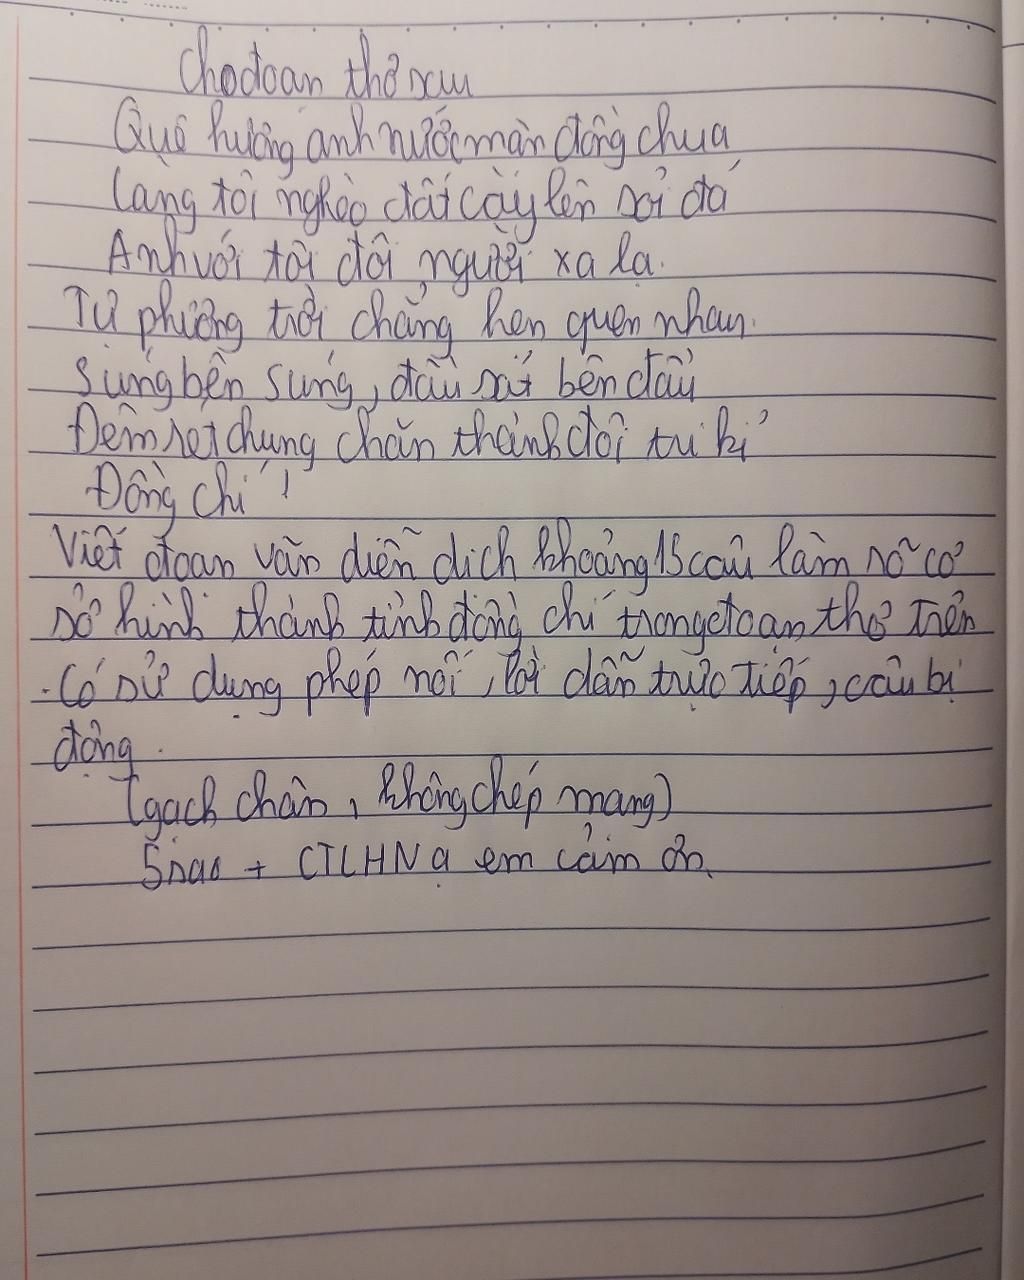 Cho đoạn thơ sau
Quê hương anh nước mặn đồng chua
Làng tôi nghèo đất cày lên sỏi đá
Anh với tôi đôi người xa lạ.
Tự phương trời chẳng hẹn quen nhau.
Súng bên súng, đầu sát bên đầu
Đêm rét chung chăn thành đôi tri kỉ
Đồng chí !
Viết đoạn văn diễn dịch khoảng 15 câu làm rõ cơ
sở hình thành tình đồng chí trong đoạn thơ trên
. Có sử dụng phép nối, lời dẫn trực tiếp, câu bị
động.
(gạch chân, không chép mạng)
5 sao + CTLHN ạ em cảm ơn.